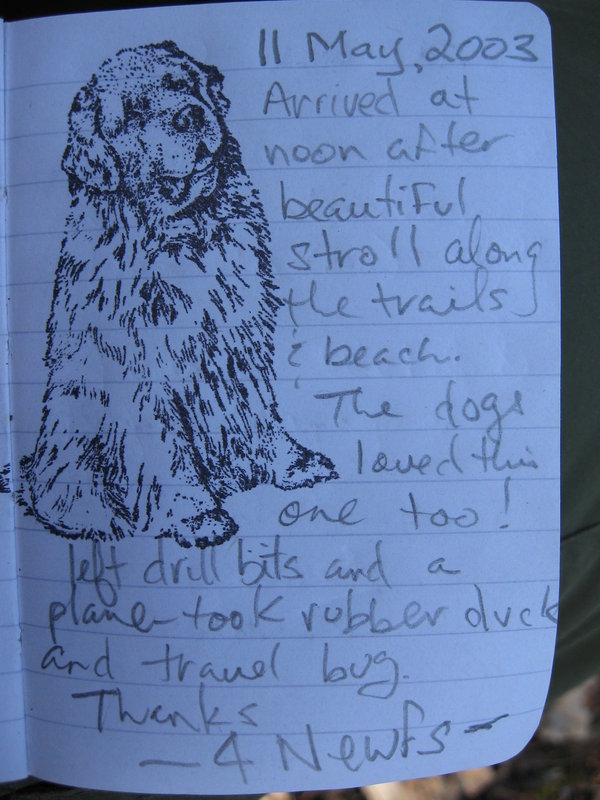 11 May, 2003
Arrived at
noon after
beautiful
stroll along
the trails
& beach.
The dogs
loved this
one too!
left drill bits and a
plane - took rubber duck
and travel bug.
Thanks
- 4 Newfs -